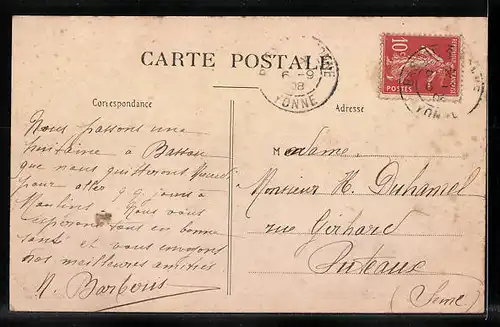 CARTE POSTALE
6 -9
08
YONNE
10c
REPUBLIQUE FRANÇAISE
POSTES
Correspondance
Adresse
Nous passons une
huitaine à Bassou
que nous quitterons
pour aller q.q. jours à
Moulins. Nous vous
espérons tous en bonne
santé et vous envoyons
nos meilleures amitiés
H. Barbous
Madame,
Monsieur H. Duhamel
rue Gérhard
Puteaux
(Seine)